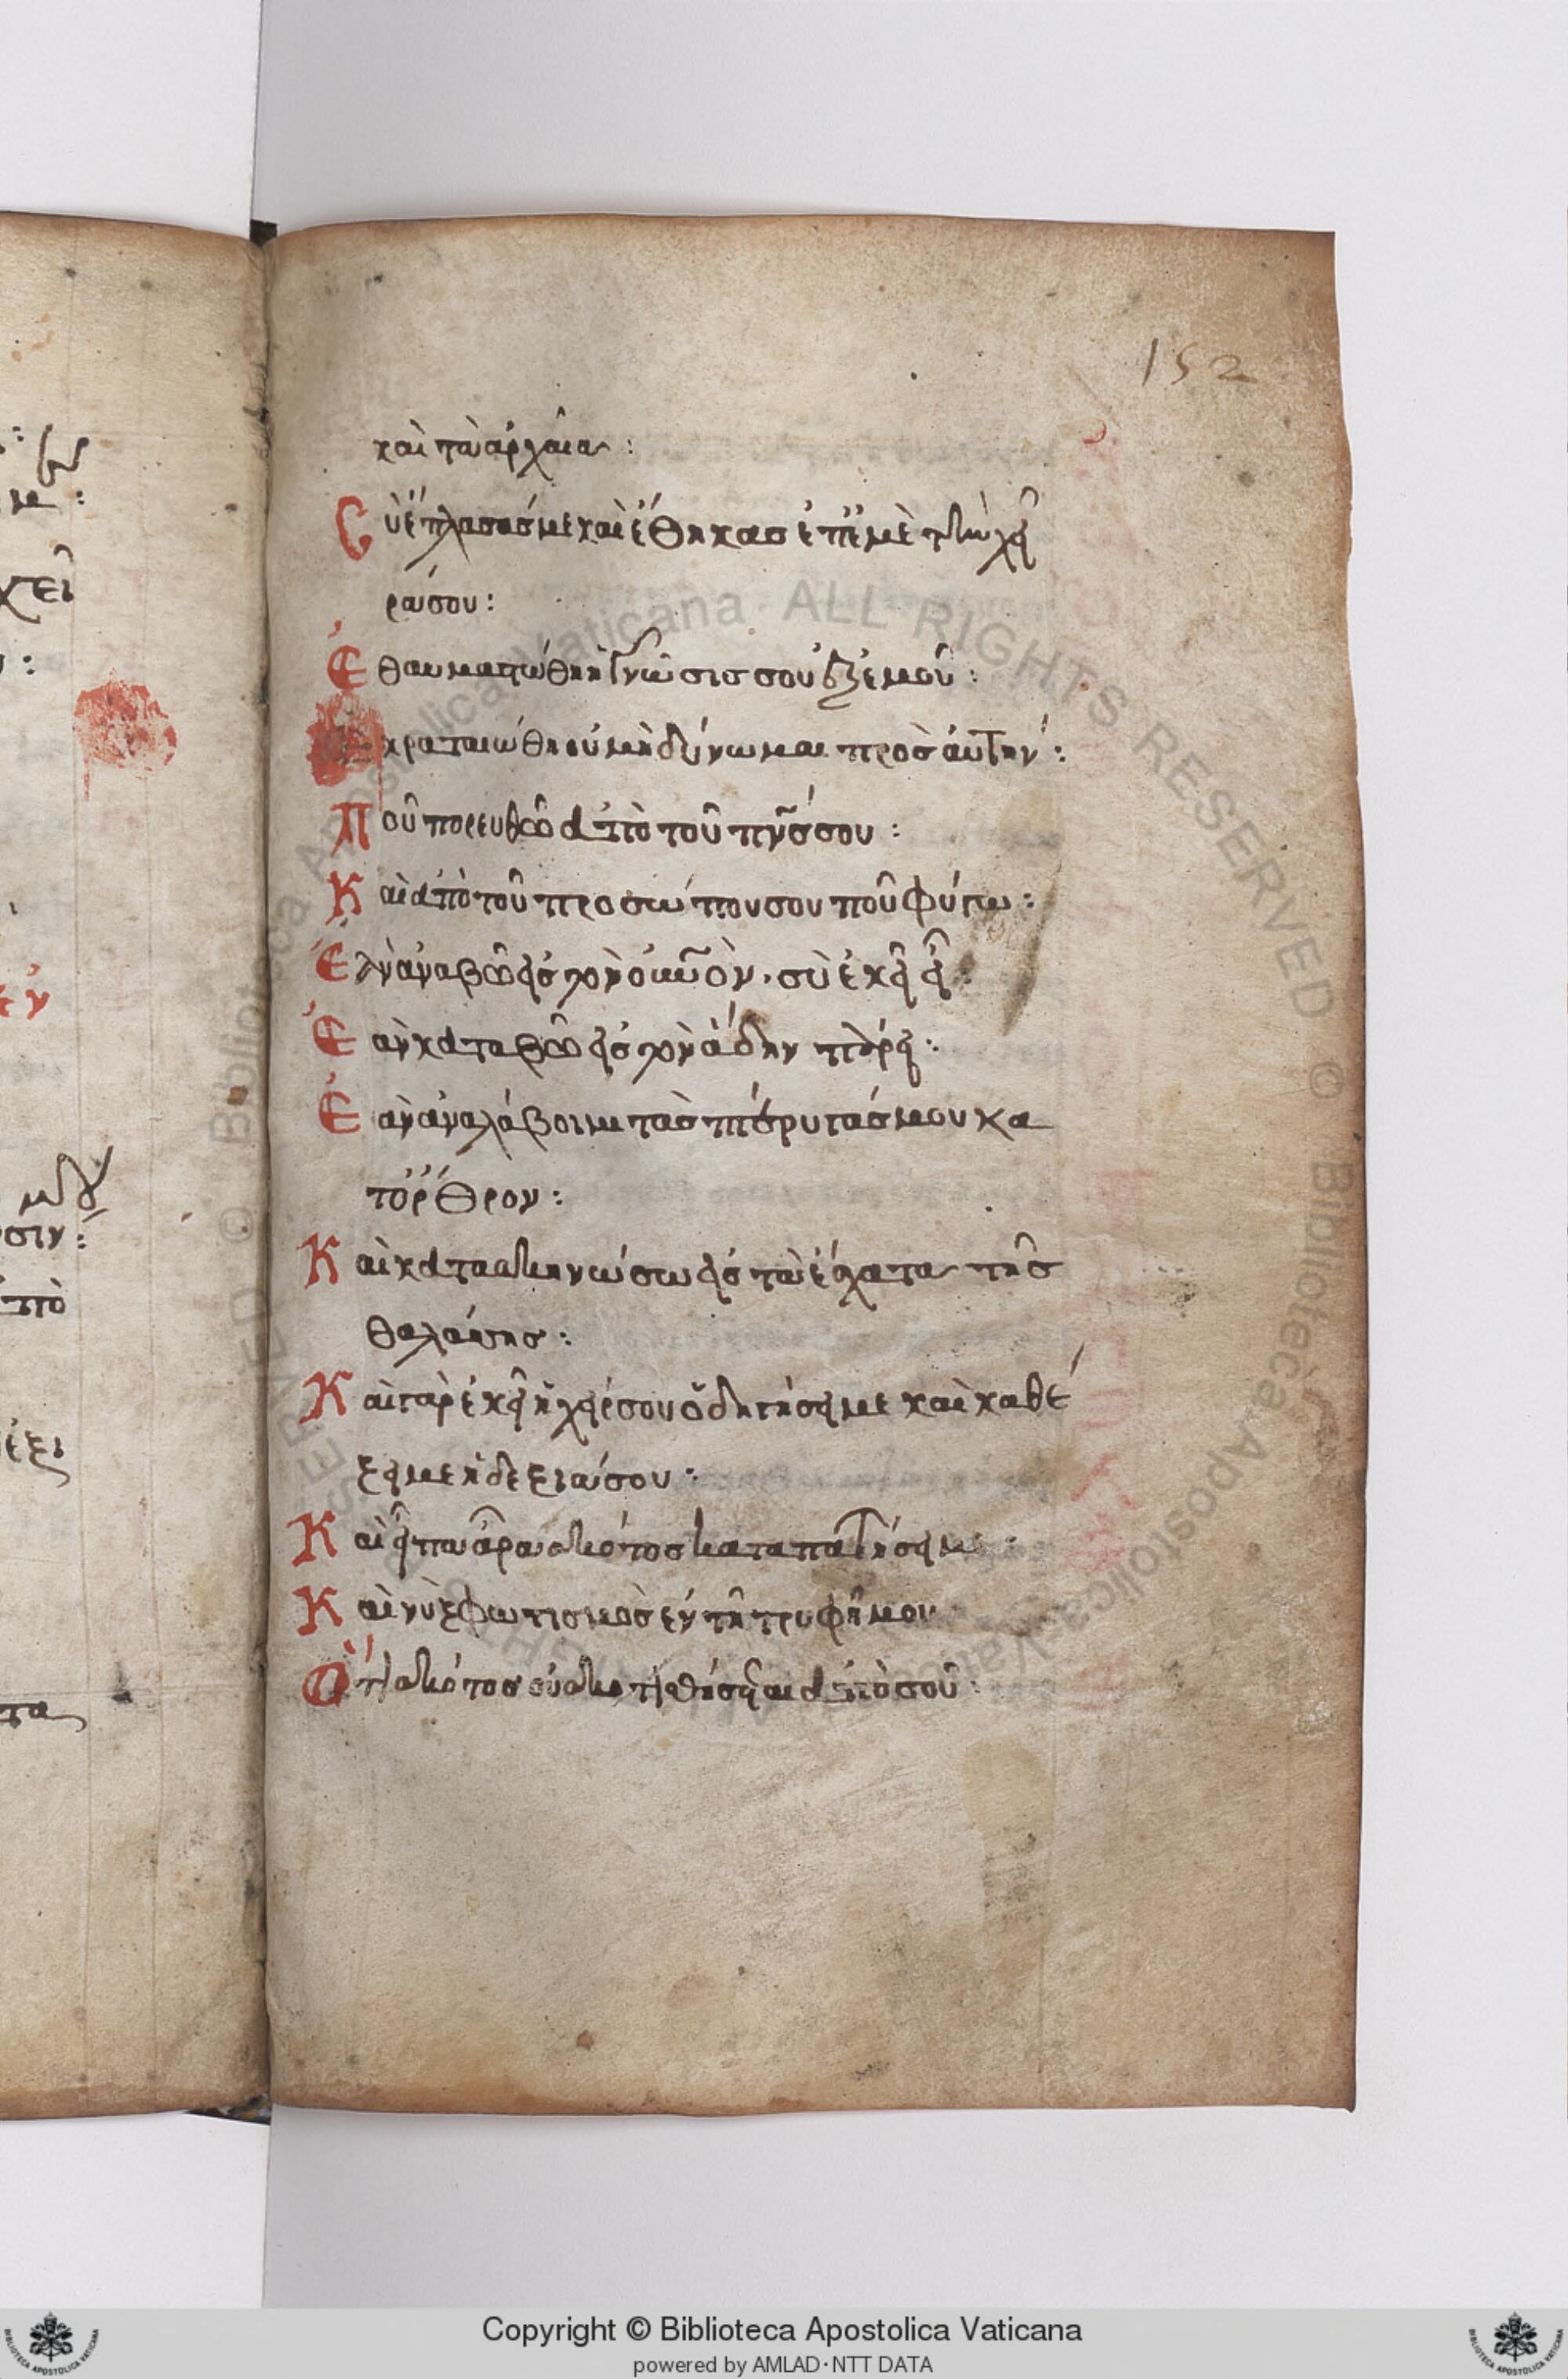 152
καὶ τὰ ἀρχαῖα :
Σὺ ἔπλασάς με καὶ ἔθηκας ἐπ' ἐμὲ τὴν χεῖ
ρά σου :
Ἐθαυμαστώθη ἡ γνῶσις σου ἐξ ἐμοῦ :
Ἐκραταιώθη οὐ μὴ δύνωμαι πρὸς αὐτήν :
Ποῦ πορευθῶ ἀπὸ τοῦ πνς σου :
Καὶ ἀπὸ τοῦ προσώπου σου ποῦ φύγω :
Ἐὰν ἀναβῶ εἰς τὸν οὐνον · σὺ ἐκεῖ εἶ :
Ἐὰν καταβῶ εἰς τὸν ἅδην πάρει :
Ἐὰν ἀναλάβοιμι τὰς πτέρυγάς μου κα
τ' ὄρθρον :
Καὶ κατασκηνώσω εἰς τὰ ἔσχατα τῆς
θαλάσσης :
Καὶ γὰρ ἐκεῖ ἡ χείρ σου ὁδηγήσει με καὶ καθέ
ξει με ἡ δεξιά σου :
Καὶ εἶπα ἆρα σκότος καταπατήσει με :
Καὶ νὺξ φωτισμὸς ἐν τῇ τρυφῇ μου
Ὅτι σκότος οὐ σκοτισθήσεται ἀπὸ σοῦ :
Copyright © Biblioteca Apostolica Vaticana
powered by AMLAD·NTT DATA